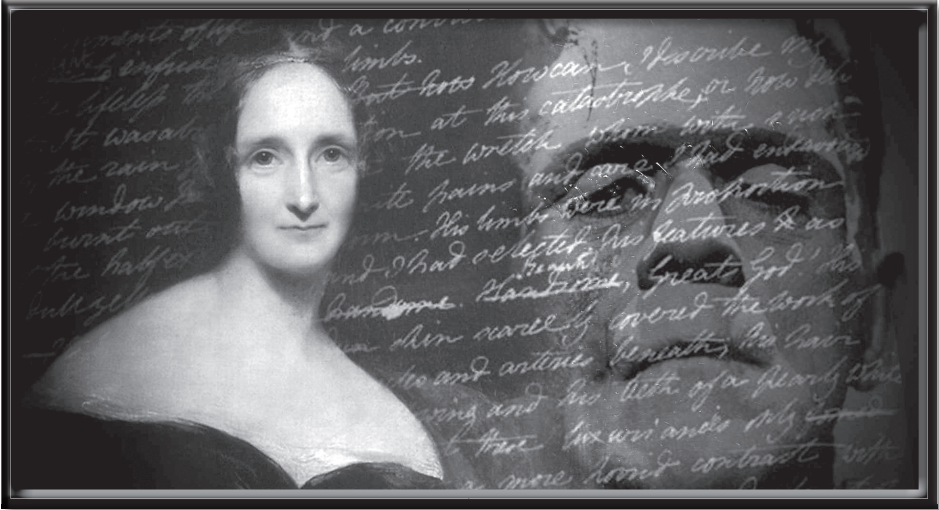 and a con
infuse limbs.
lifeless but how How can I describe my
It was at this catastrophe, or how deli
the rain the wretch whom with such
window pains and care I had endeavou
burnt out His limbs were in proportion
the half ex and I had selected his features as
handsome. Handsome. Beautiful, Great God! his
skin scarcely covered the work of
and arteries beneath; his hair
and his teeth of a pearly white
these luxuriances only formed
a more horrid contrast with